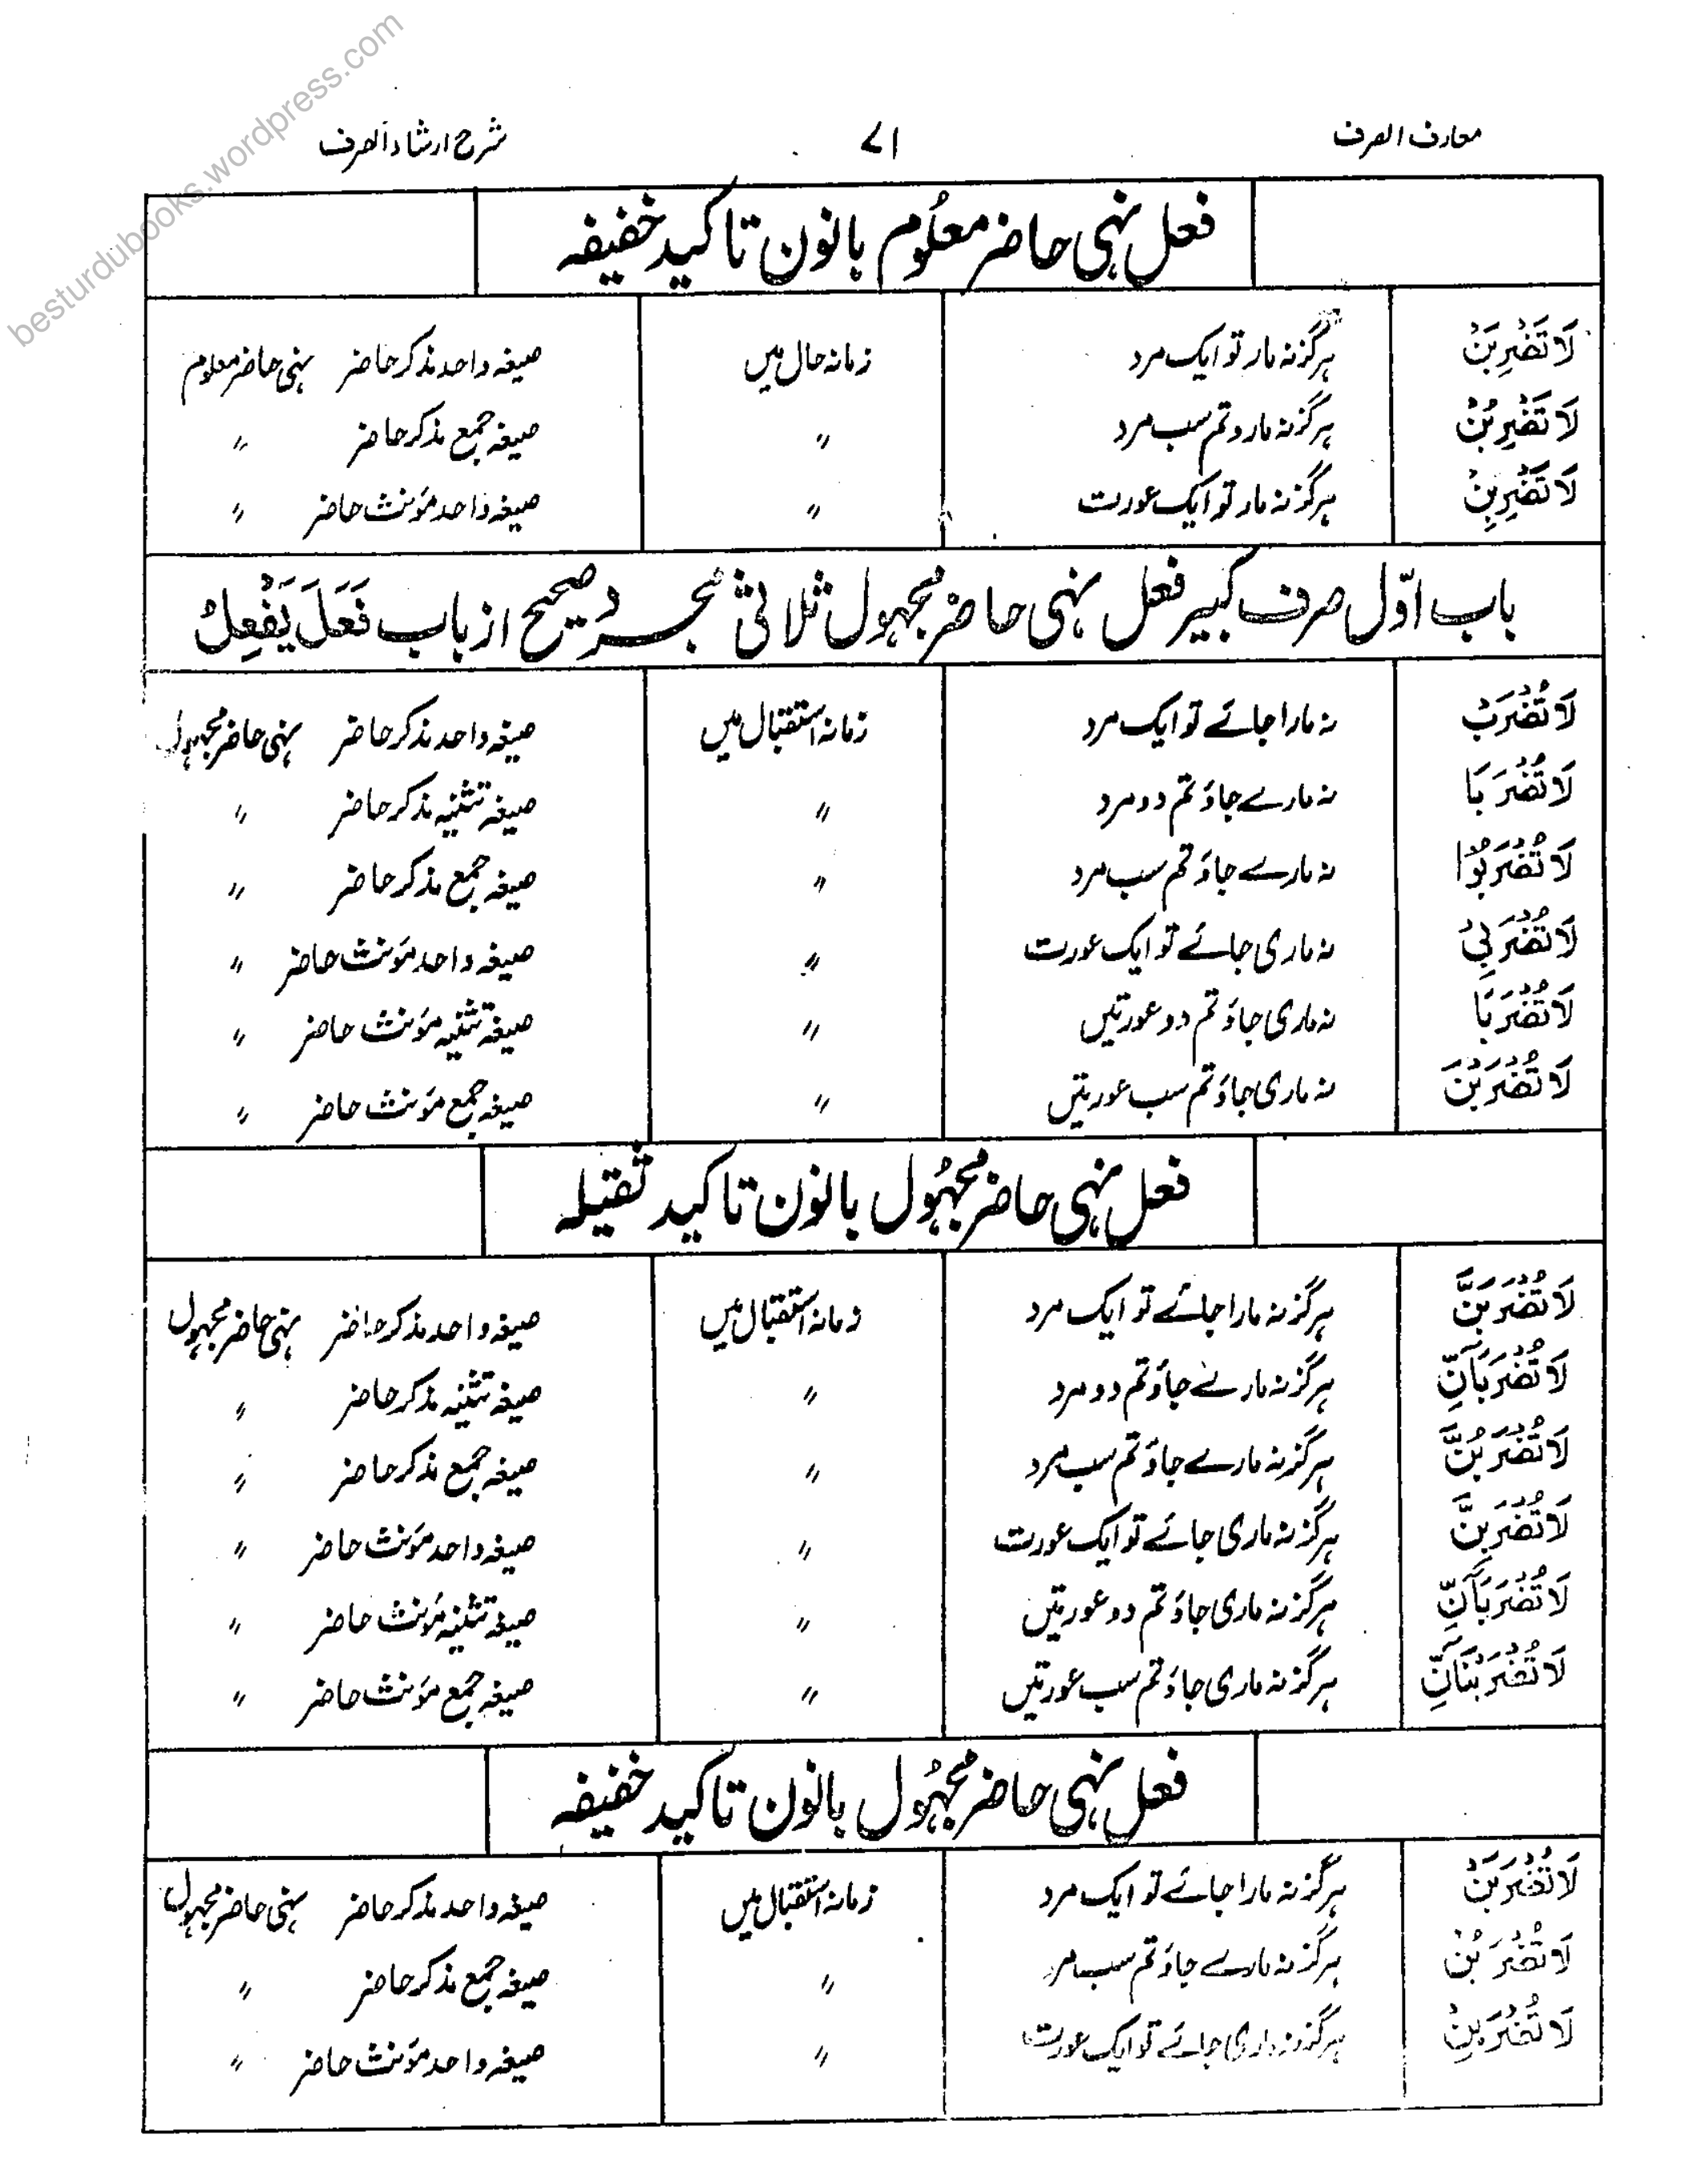 besturdubooks.wordpress.com
معارف الصرف ۷۱ شرح ارشاد الصرف
فعل نہی حاضر معلُوم بانون تاکید خفیفہ
لَا تَضْرِبَنْ ہرگز نہ مار تو ایک مرد زمانہ حال میں صیغہ واحد مذکر حاضر نہی حاضر معلوم
لَا تَضْرِبُنْ ہرگز نہ مارو تم سب مرد 〃 صیغہ جمع مذکر حاضر 〃
لَا تَضْرِبِنْ ہرگز نہ مار تو ایک عورت 〃 صیغہ واحد مؤنث حاضر 〃
باب اوّل صرف کبیر فعل نہی حاضر مجہول ثلاثی مجرد صحیح از باب فَعَلَ یَفْعِلُ
لَا تُضْرَبْ نہ مارا جائے تو ایک مرد زمانہ استقبال میں صیغہ واحد مذکر حاضر نہی حاضر مجہول
لَا تُضْرَبَا نہ مارے جاؤ تم دو مرد 〃 صیغہ تثنیہ مذکر حاضر 〃
لَا تُضْرَبُوْا نہ مارے جاؤ تم سب مرد 〃 صیغہ جمع مذکر حاضر 〃
لَا تُضْرَبِیْ نہ ماری جائے تو ایک عورت 〃 صیغہ واحد مؤنث حاضر 〃
لَا تُضْرَبَا نہ ماری جاؤ تم دو عورتیں 〃 صیغہ تثنیہ مؤنث حاضر 〃
لَا تُضْرَبْنَ نہ ماری جاؤ تم سب عورتیں 〃 صیغہ جمع مؤنث حاضر 〃
فعل نہی حاضر مجہُول بانون تاکید ثقیلہ
لَا تُضْرَبَنَّ ہرگز نہ مارا جائے تو ایک مرد زمانہ استقبال میں صیغہ واحد مذکر حاضر نہی حاضر مجہول
لَا تُضْرَبَانِّ ہرگز نہ مارے جاؤ تم دو مرد 〃 صیغہ تثنیہ مذکر حاضر 〃
لَا تُضْرَبُنَّ ہرگز نہ مارے جاؤ تم سب مرد 〃 صیغہ جمع مذکر حاضر 〃
لَا تُضْرَبِنَّ ہرگز نہ ماری جائے تو ایک عورت 〃 صیغہ واحد مؤنث حاضر 〃
لَا تُضْرَبَانِّ ہرگز نہ ماری جاؤ تم دو عورتیں 〃 صیغہ تثنیہ مؤنث حاضر 〃
لَا تُضْرَبْنَانِّ ہرگز نہ ماری جاؤ تم سب عورتیں 〃 صیغہ جمع مؤنث حاضر 〃
فعل نہی حاضر مجہُول بانون تاکید خفیفہ
لَا تُضْرَبَنْ ہرگز نہ مارا جائے تو ایک مرد زمانہ استقبال میں صیغہ واحد مذکر حاضر نہی حاضر مجہول
لَا تُضْرَبُنْ ہرگز نہ مارے جاؤ تم سب مرد 〃 صیغہ جمع مذکر حاضر 〃
لَا تُضْرَبِنْ ہرگز نہ ماری جائے تو ایک عورت 〃 صیغہ واحد مؤنث حاضر 〃